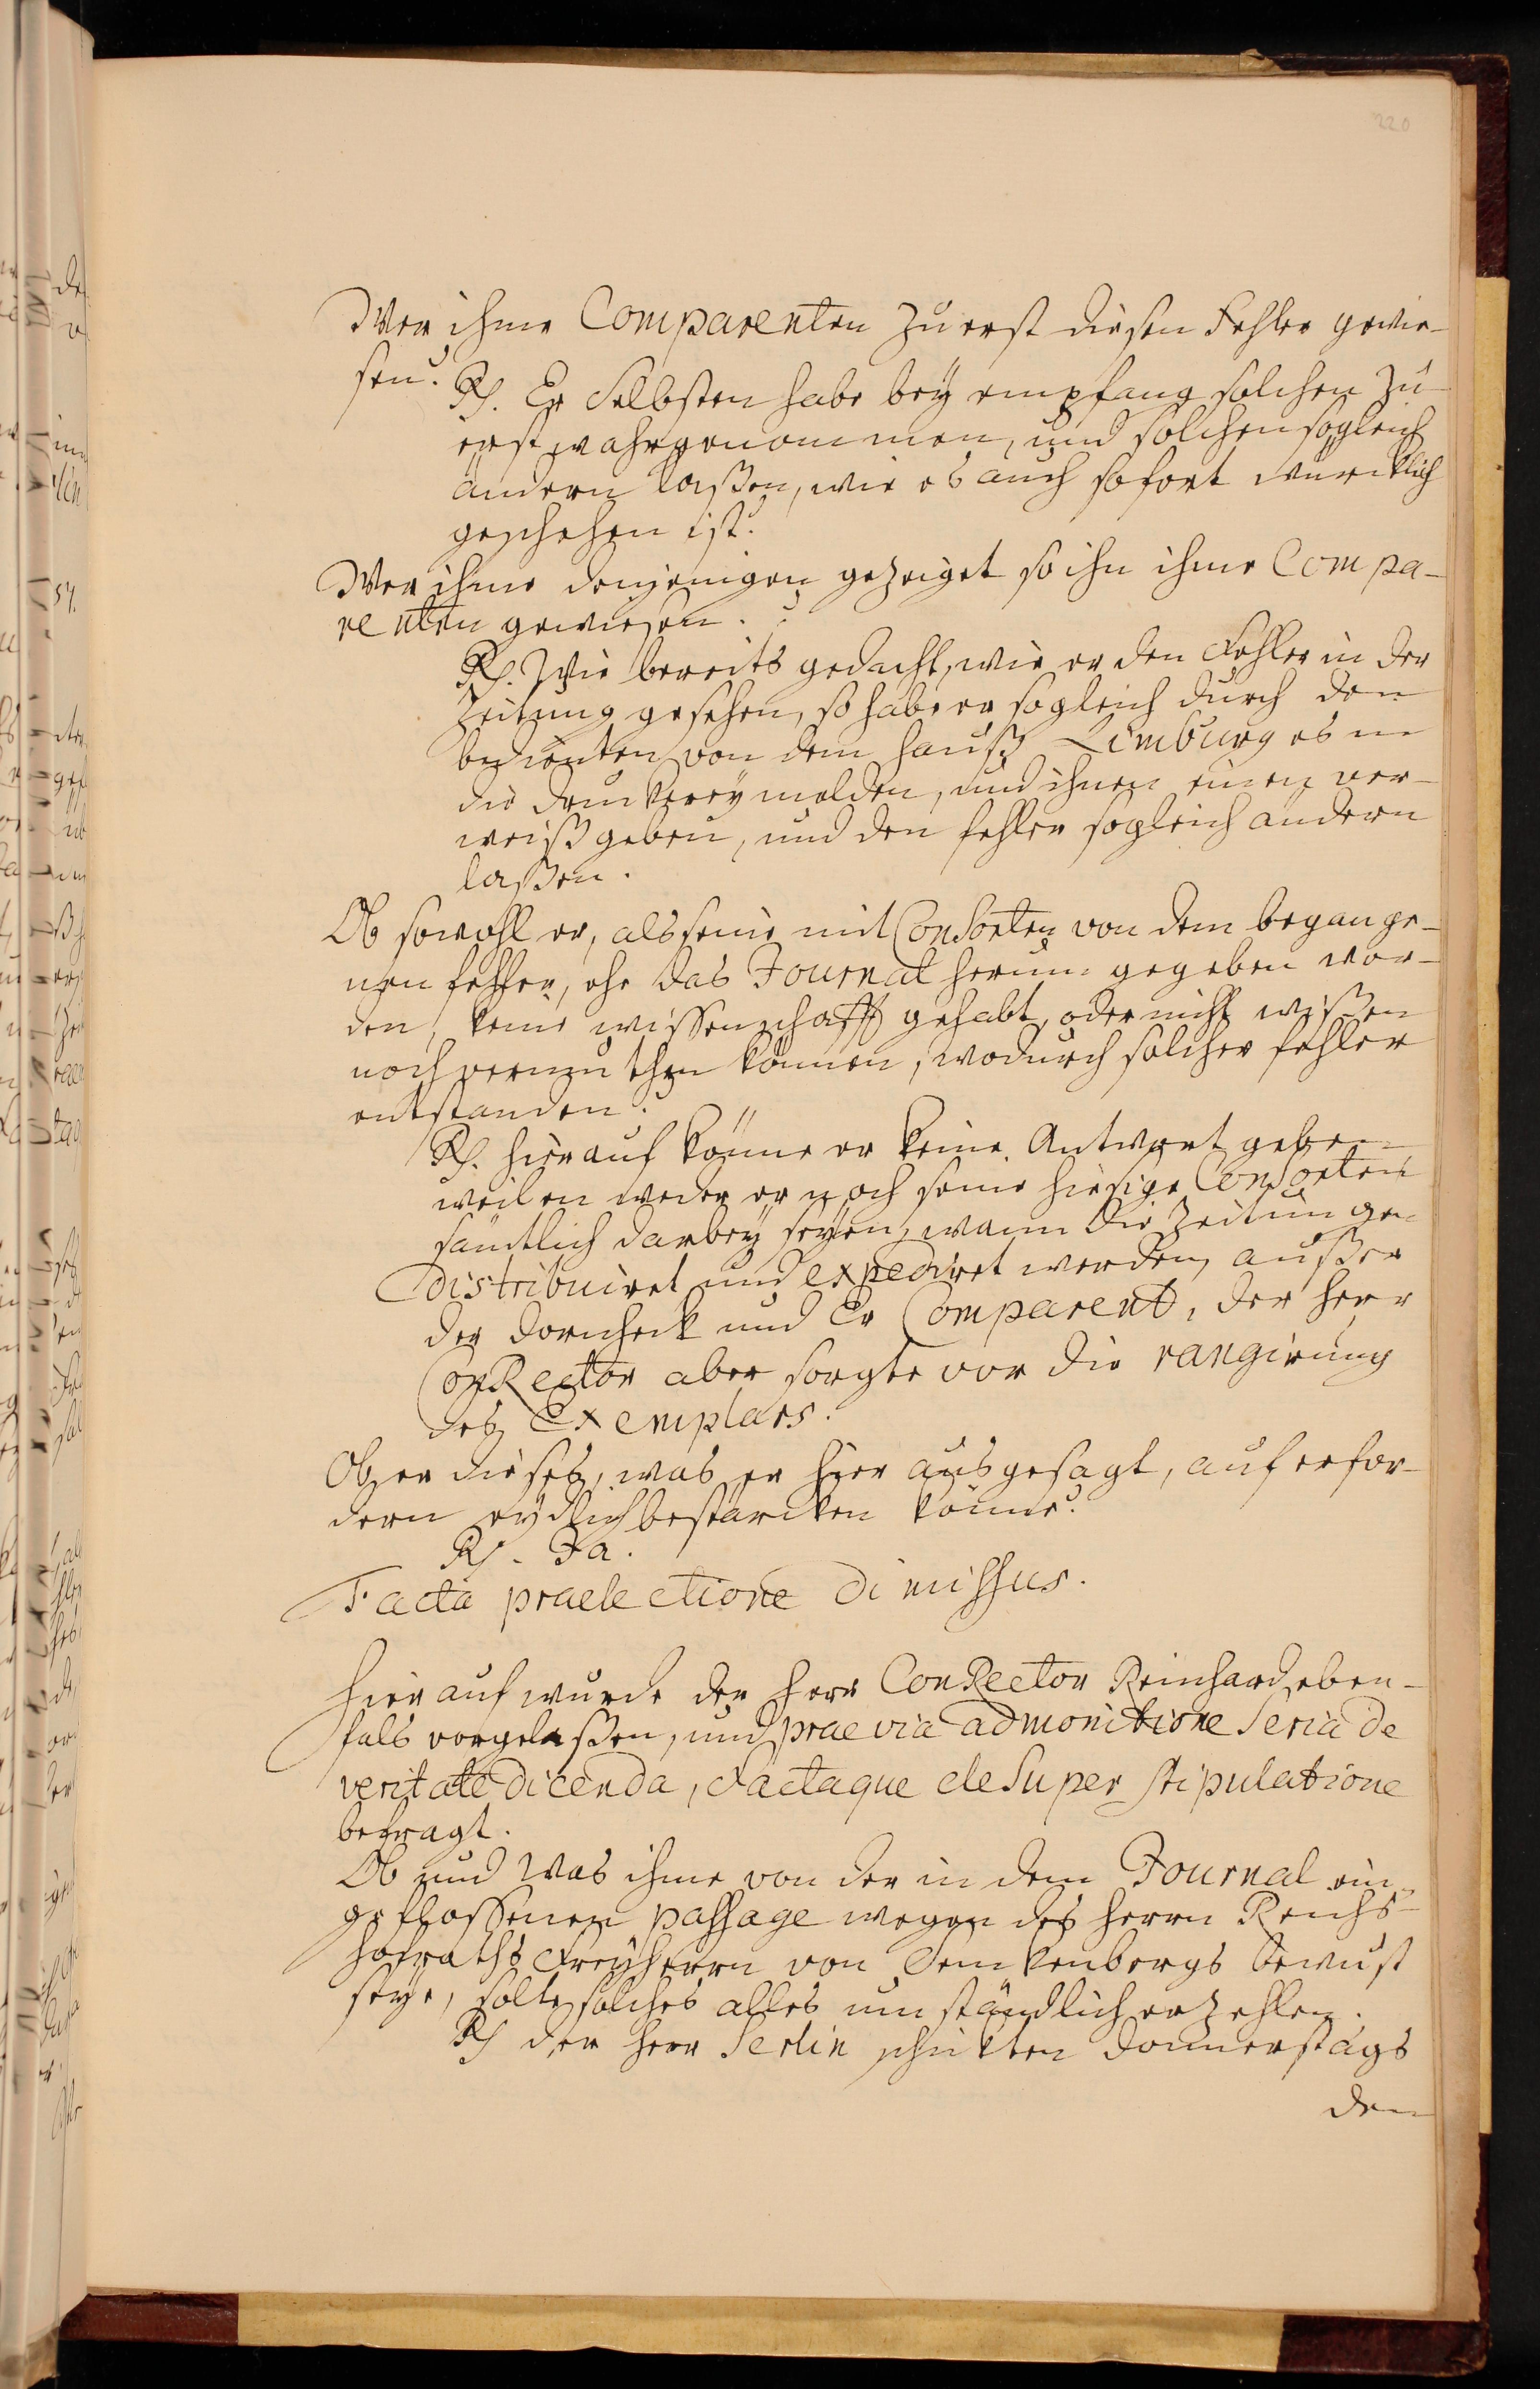 220
Wer ihme Comparenten zu erst diesen Fehler gewie-
sen?
Rs. Er Selbsten habe bey empfang solchen zu
erst wahrgenommen, und solchen sogleich
ändern laßen, wie es auch sofort würcklich
geschehen ist.
Wer ihme denjenigen gezeiget so ihn ihme Compa-
renten gewiesen?
Rs. Wie bereits gedacht, wie er den Fehler in der
Zeitung gesehen, so habe er sogleich durch den
bedienten von dem Hauß Limburg es in
die druckerey melden, und ihnen einen ver-
weiß geben, und den fehler sogleich ändern
laßen.
Ob sowohl er, als seine mit Consorten von dem begange-
nen fehler, ehe das Journal herum gegeben wor-
den, keine wissenschafft gehabt, oder nicht wißen
noch vermuthen können, wodurch solcher fehler
entstanden?
Rs. hierauf könne er keine Antwort geben
weilen weder er noch seine hiesige Consorten
sämtlich darbey seyen, wann die Zeitungen
distribuiret und expediret werden, außer
der Dornheck und Er Comparent, der Herr
ConRector aber sorgte vor die rangirung
des Exemplars.
Ob er dieses, was er hier ausgesagt, auf erfor-
dern eydlich bestärcken könne?
Rs. Ja.
Facta praelectione dimissus.
Hierauf wurde der Herr ConRector Reinhard eben-
fals vorgelaßen, und praevia admonitione seria de
veritate dicenda, factaque desuper stipulatione
befragt.
Ob und Was ihme von der in dem Journal ein-
geflossenen passage wegen des Herrn Reichs-
hofraths Freyherrn von Senckenbergs bewust
seye, solte solches alles umständlich erzehlen.
Rs der Herr Serlin schickten Donnerstags
den